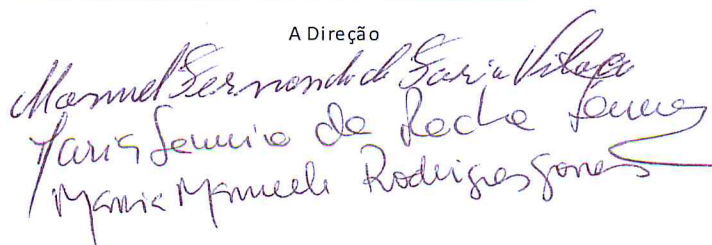 A Direção
Manuel Fernando de Faria Vilaça
Maria da Rocha
Maria Manuela Rodrigues Gomes